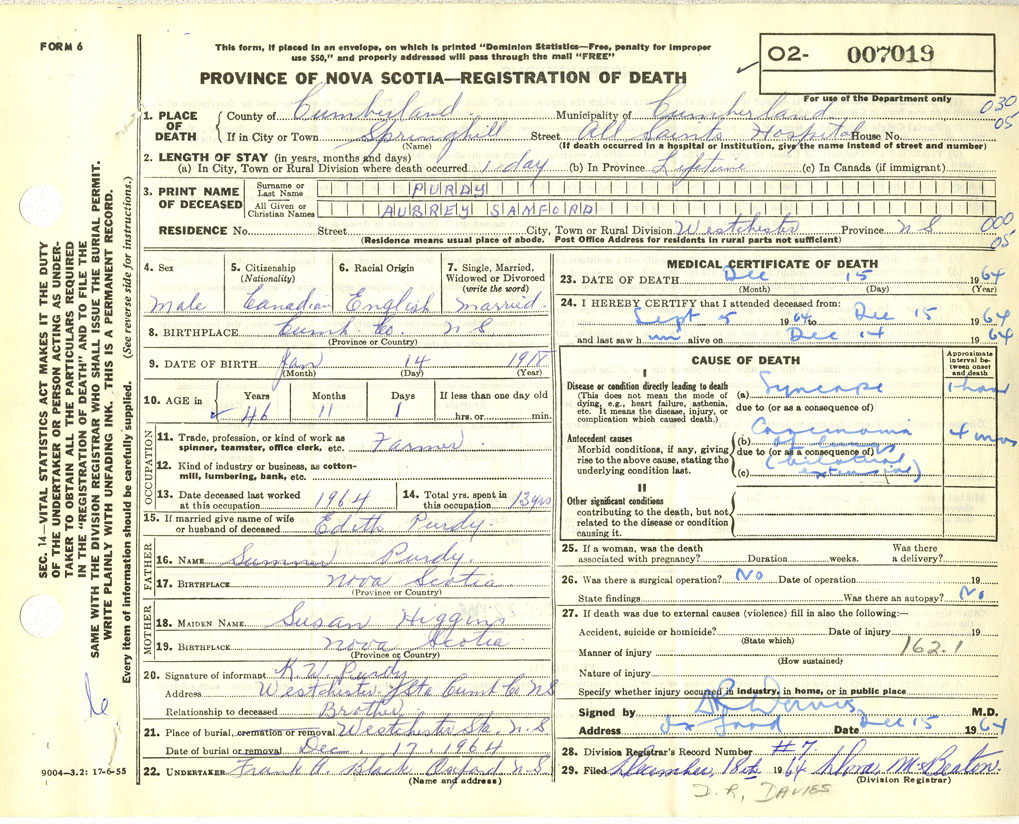 FORM 6
This form, if placed in an envelope, on which is printed "Dominion Statistics—Free, penalty for improper
use $50," and properly addressed will pass through the mail "FREE"
02- 007019
PROVINCE OF NOVA SCOTIA—REGISTRATION OF DEATH
For use of the Department only
030
05
1. PLACE OF DEATH
County of Cumberland Municipality of Cumberland
If in City or Town Springhill Street All Saints Hospital House No.
(Name) (If death occurred in a hospital or institution, give the name instead of street and number)
2. LENGTH OF STAY (in years, months and days)
(a) In City, Town or Rural Division where death occurred 1 day (b) In Province Lifetime (c) In Canada (if immigrant)
3. PRINT NAME OF DECEASED
Surname or Last Name PURDY
All Given or Christian Names AUBREY SAMFORD
RESIDENCE No. Street City, Town or Rural Division Westchester Province N S
000
05
(Residence means usual place of abode. Post Office Address for residents in rural parts not sufficient)
4. Sex
5. Citizenship (Nationality)
6. Racial Origin
7. Single, Married, Widowed or Divorced (write the word)
Male Canadian English Married.
8. BIRTHPLACE Cumb Co. N S
(Province or Country)
9. DATE OF BIRTH Jan 14 1918
(Month) (Day) (Year)
10. AGE in Years Months Days If less than one day old
46 11 1 hrs. or min.
OCCUPATION
11. Trade, profession, or kind of work as
spinner, teamster, office clerk, etc. Farmer
12. Kind of industry or business, as cotton-
mill, lumbering, bank, etc.
13. Date deceased last worked
at this occupation 1964
14. Total yrs. spent in
this occupation 13 yrs
15. If married give name of wife
or husband of deceased Edith Purdy
FATHER
16. NAME Summer Purdy.
17. BIRTHPLACE Nova Scotia
(Province or Country)
MOTHER
18. MAIDEN NAME Susan Higgins
19. BIRTHPLACE Nova Scotia
(Province or Country)
20. Signature of informant K. W. Purdy
Address Westchester Sta Cumb Co NS
Relationship to deceased Brother
21. Place of burial, cremation or removal Westchester Sta. N.S
Date of burial or removal Dec. 17. 1964
22. UNDERTAKER Frank A. Black Oxford N S
(Name and address)
MEDICAL CERTIFICATE OF DEATH
23. DATE OF DEATH Dec 15 1964
(Month) (Day) (Year)
24. I HEREBY CERTIFY that I attended deceased from:
Sept 5 1964 to Dec 15 1964
and last saw him alive on Dec 14 1964
CAUSE OF DEATH
Approximate interval between onset and death
I
Disease or condition directly leading to death
(This does not mean the mode of
dying, e.g., heart failure, asthenia,
etc. It means the disease, injury, or
complication which caused death.)
(a) Syncope 1 hour
due to (or as a consequence of)
Antecedent causes
Morbid conditions, if any, giving
rise to the above cause, stating the
underlying condition last.
(b) Carcinoma 4 mos
due to (or as a consequence of)
of lungs
(bilateral
(c) extensive)
II
Other significant conditions
contributing to the death, but not
related to the disease or condition
causing it.
25. If a woman, was the death
associated with pregnancy? Duration weeks. Was there
a delivery?
26. Was there a surgical operation? No Date of operation 19
State findings Was there an autopay? No
27. If death was due to external causes (violence) fill in also the following:—
Accident, suicide or homicide? Date of injury 19
(State which)
162.1
Manner of injury
(How sustained)
Nature of injury
Specify whether injury occured in industry, in home, or in public place
Signed by DR Davies M.D.
Address Oxford Date Dec 15 1964
28. Division Registrar's Record Number #7
29. Filed December, 18th 1964 McBeaton
(Division Registrar)
D.R. DAVIES
SEC. 14—VITAL STATISTICS ACT MAKES IT THE DUTY
OF THE UNDERTAKER OR PERSON ACTING AS UNDER-
TAKER TO OBTAIN ALL THE PARTICULARS REQUIRED
IN THE "REGISTRATION OF DEATH" AND TO FILE THE
SAME WITH THE DIVISION REGISTRAR WHO SHALL ISSUE THE BURIAL PERMIT.
WRITE PLAINLY WITH UNFADING INK. THIS IS A PERMANENT RECORD.
Every item of information should be carefully supplied. (See reverse side for instructions.)
9004—3.2: 17-6-55